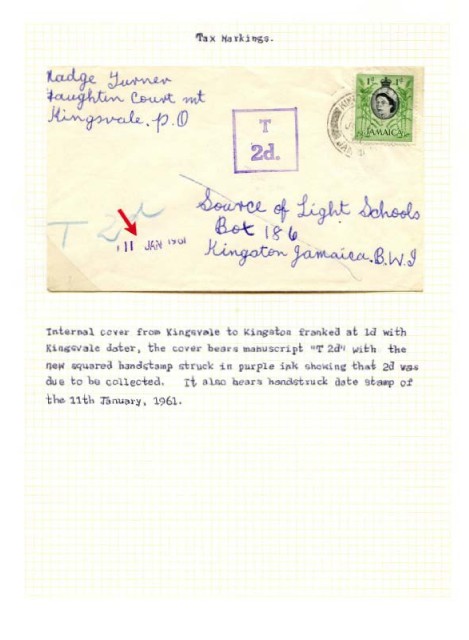 Tax Markings.
Madge Turner
Haughton Court mt
Kingsvale. P.O
T
2d.
1D 1D
JAMAICA
T 2d
11 JAN 1961
Source of Light Schools
Box 186
Kingston Jamaica. B.W.I
Internal cover from Kingsvale to Kingston franked at 1d with
Kingsvale dater, the cover bears manuscript "T 2d" with the
new squared handstamp struck in purple ink showing that 2d was
due to be collected. It also bears handstruck date stamp of
the 11th January, 1961.